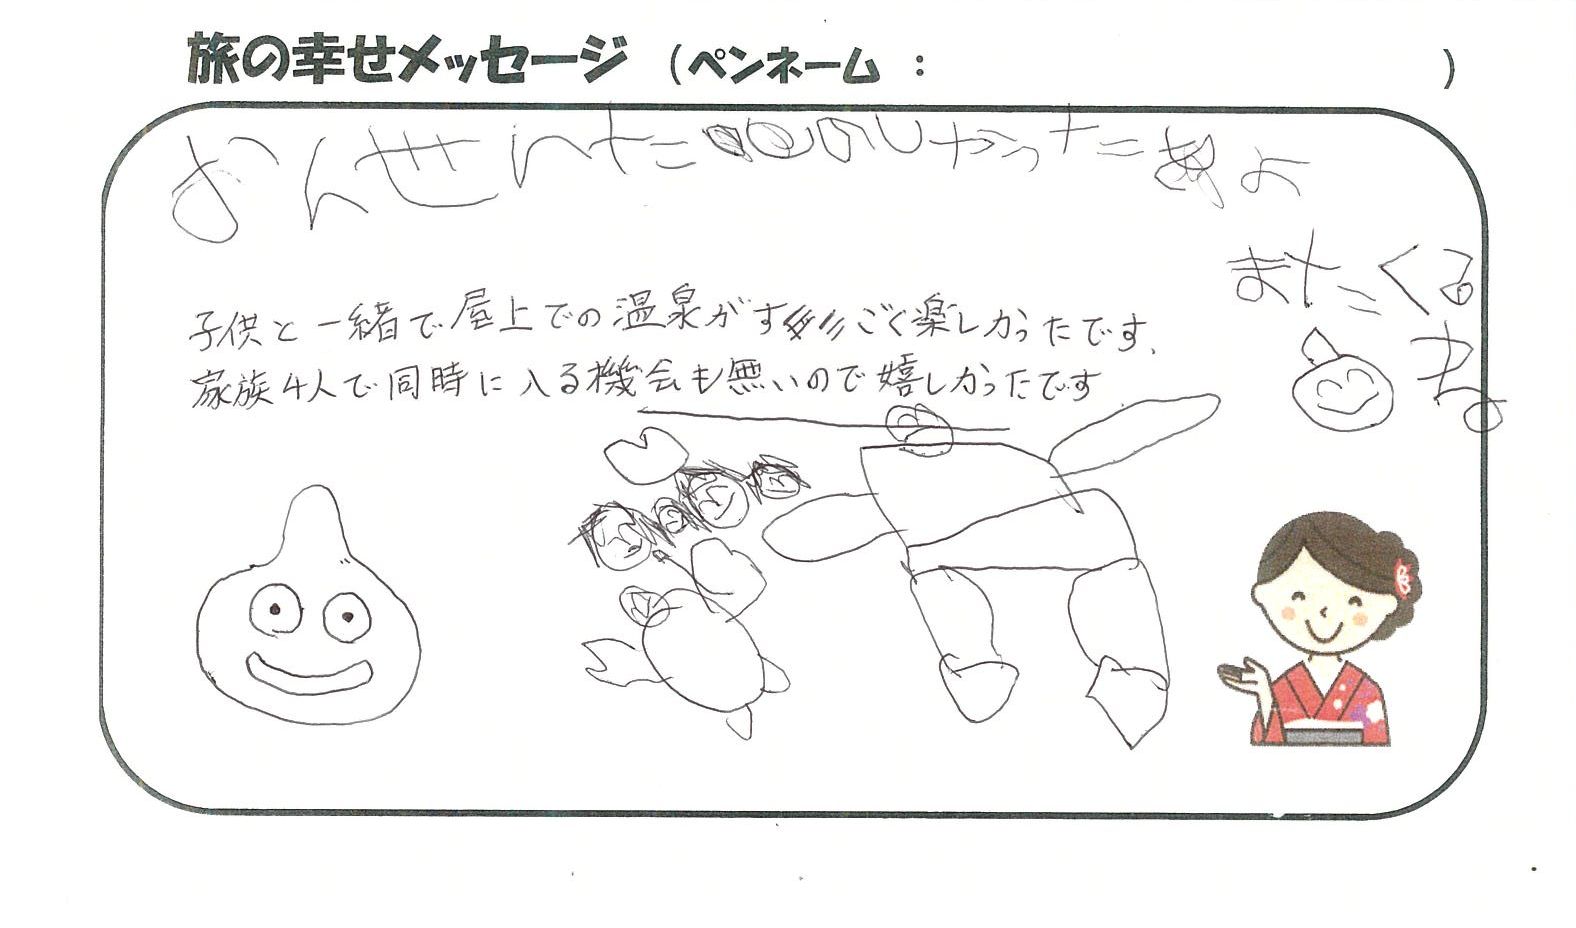 旅の幸せメッセージ （ペンネーム ： ）
おんせんたのしかったよ
またくる
ね
子供と一緒で屋上での温泉がすごく楽しかったです、
家族4人で同時に入る機会も無いので嬉しかったです